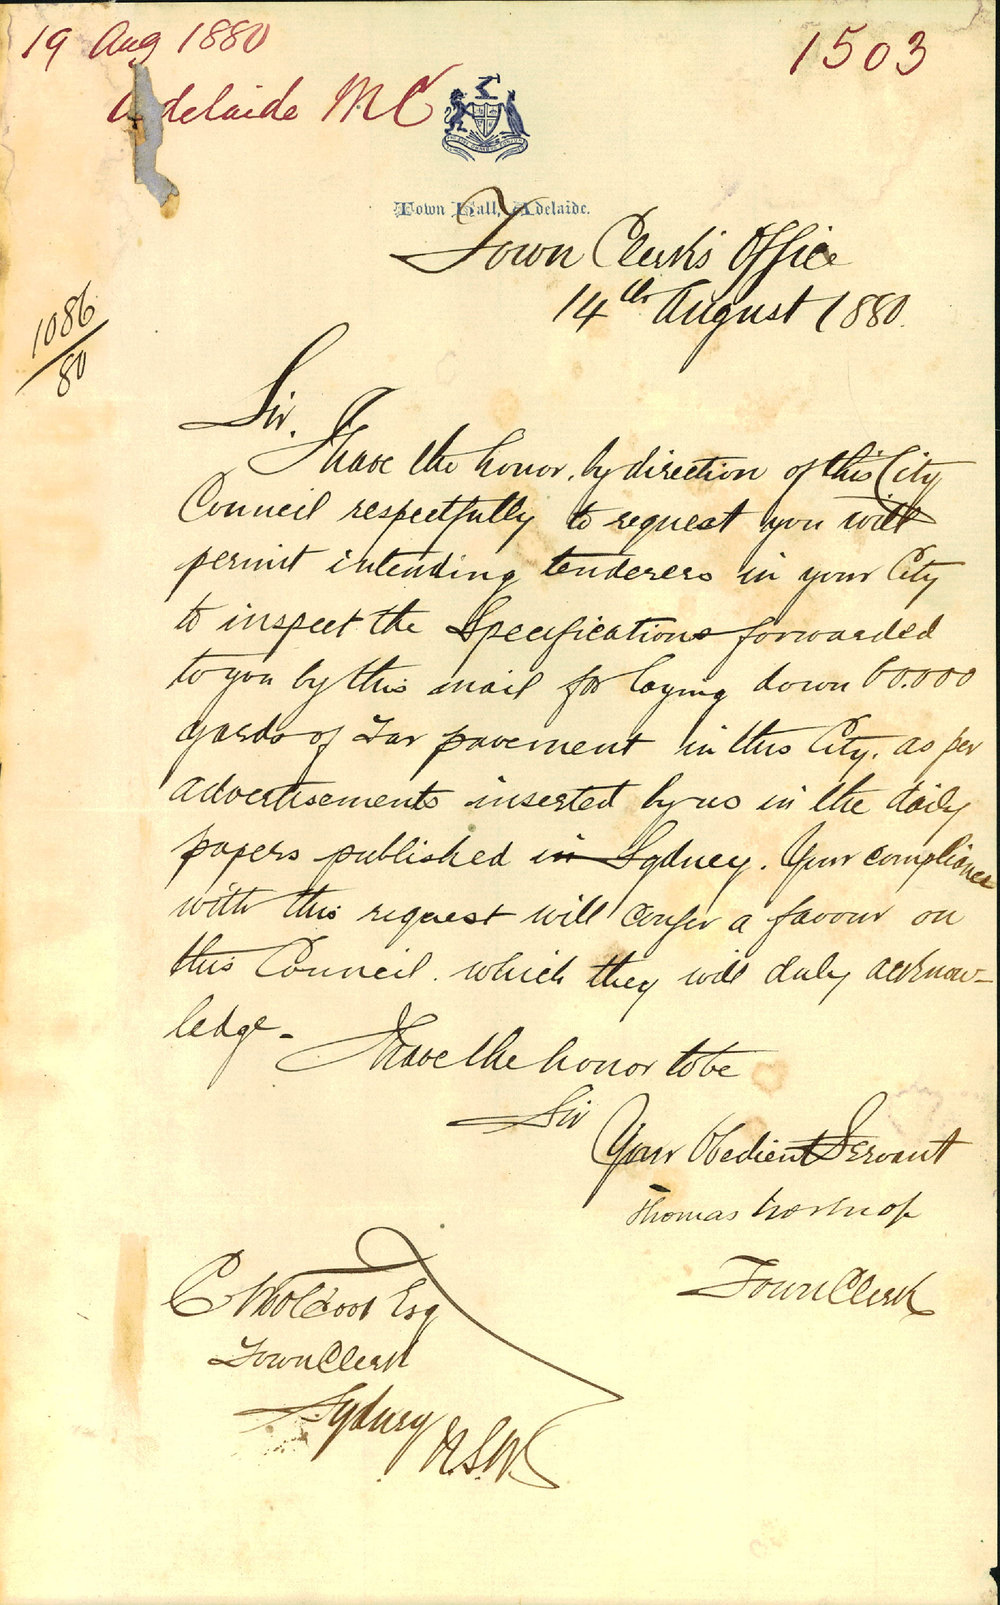 19 Aug 1880
1503
Adelaide MC
Town Hall, Adelaide.
Town Clerk's Office
14th August 1880.
1086/80
Sir,
I have the honor, by direction of this City
Council respectfully to request you will
permit intending tenderers in your City
to inspect the Specifications forwarded
to you by this mail for laying down 60.000
yards of Tar pavement in this City, as per
advertisements inserted by us in the daily
papers published in Sydney. Your compliance
with this request will confer a favour on
this Council, which they will duly acknow-
ledge -
I have the honor to be
Sir
Your Obedient Servant
Thomas Worsnop
Town Clerk
C Woolcott Esq
Town Clerk
Sydney
N.S.W.